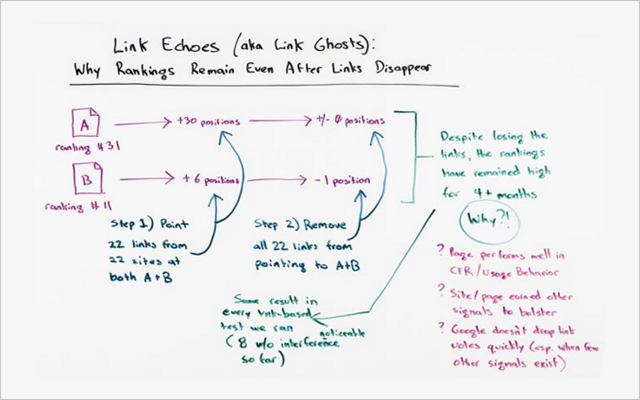 Link Echoes (aka Link Ghosts):
Why Rankings Remain Even After Links Disappear
A
ranking #31
+30 positions
+/- 0 positions
B
ranking #11
+6 positions
-1 position
Step 1) Point
22 links from
22 sites at
both A+B
Step 2) Remove
all 22 links from
pointing to A+B
Despite losing the
links, the rankings
have remained high
for 4+ months
Why?!
? Page performs well in
CTR/Usage Behavior
? Site/page earned other
signals to bolster
? Google doesn't drop link
votes quickly (esp. when few
other signals exist)
Same result in
every link-based
test we ran
(8 w/o noticeable interference
so far)